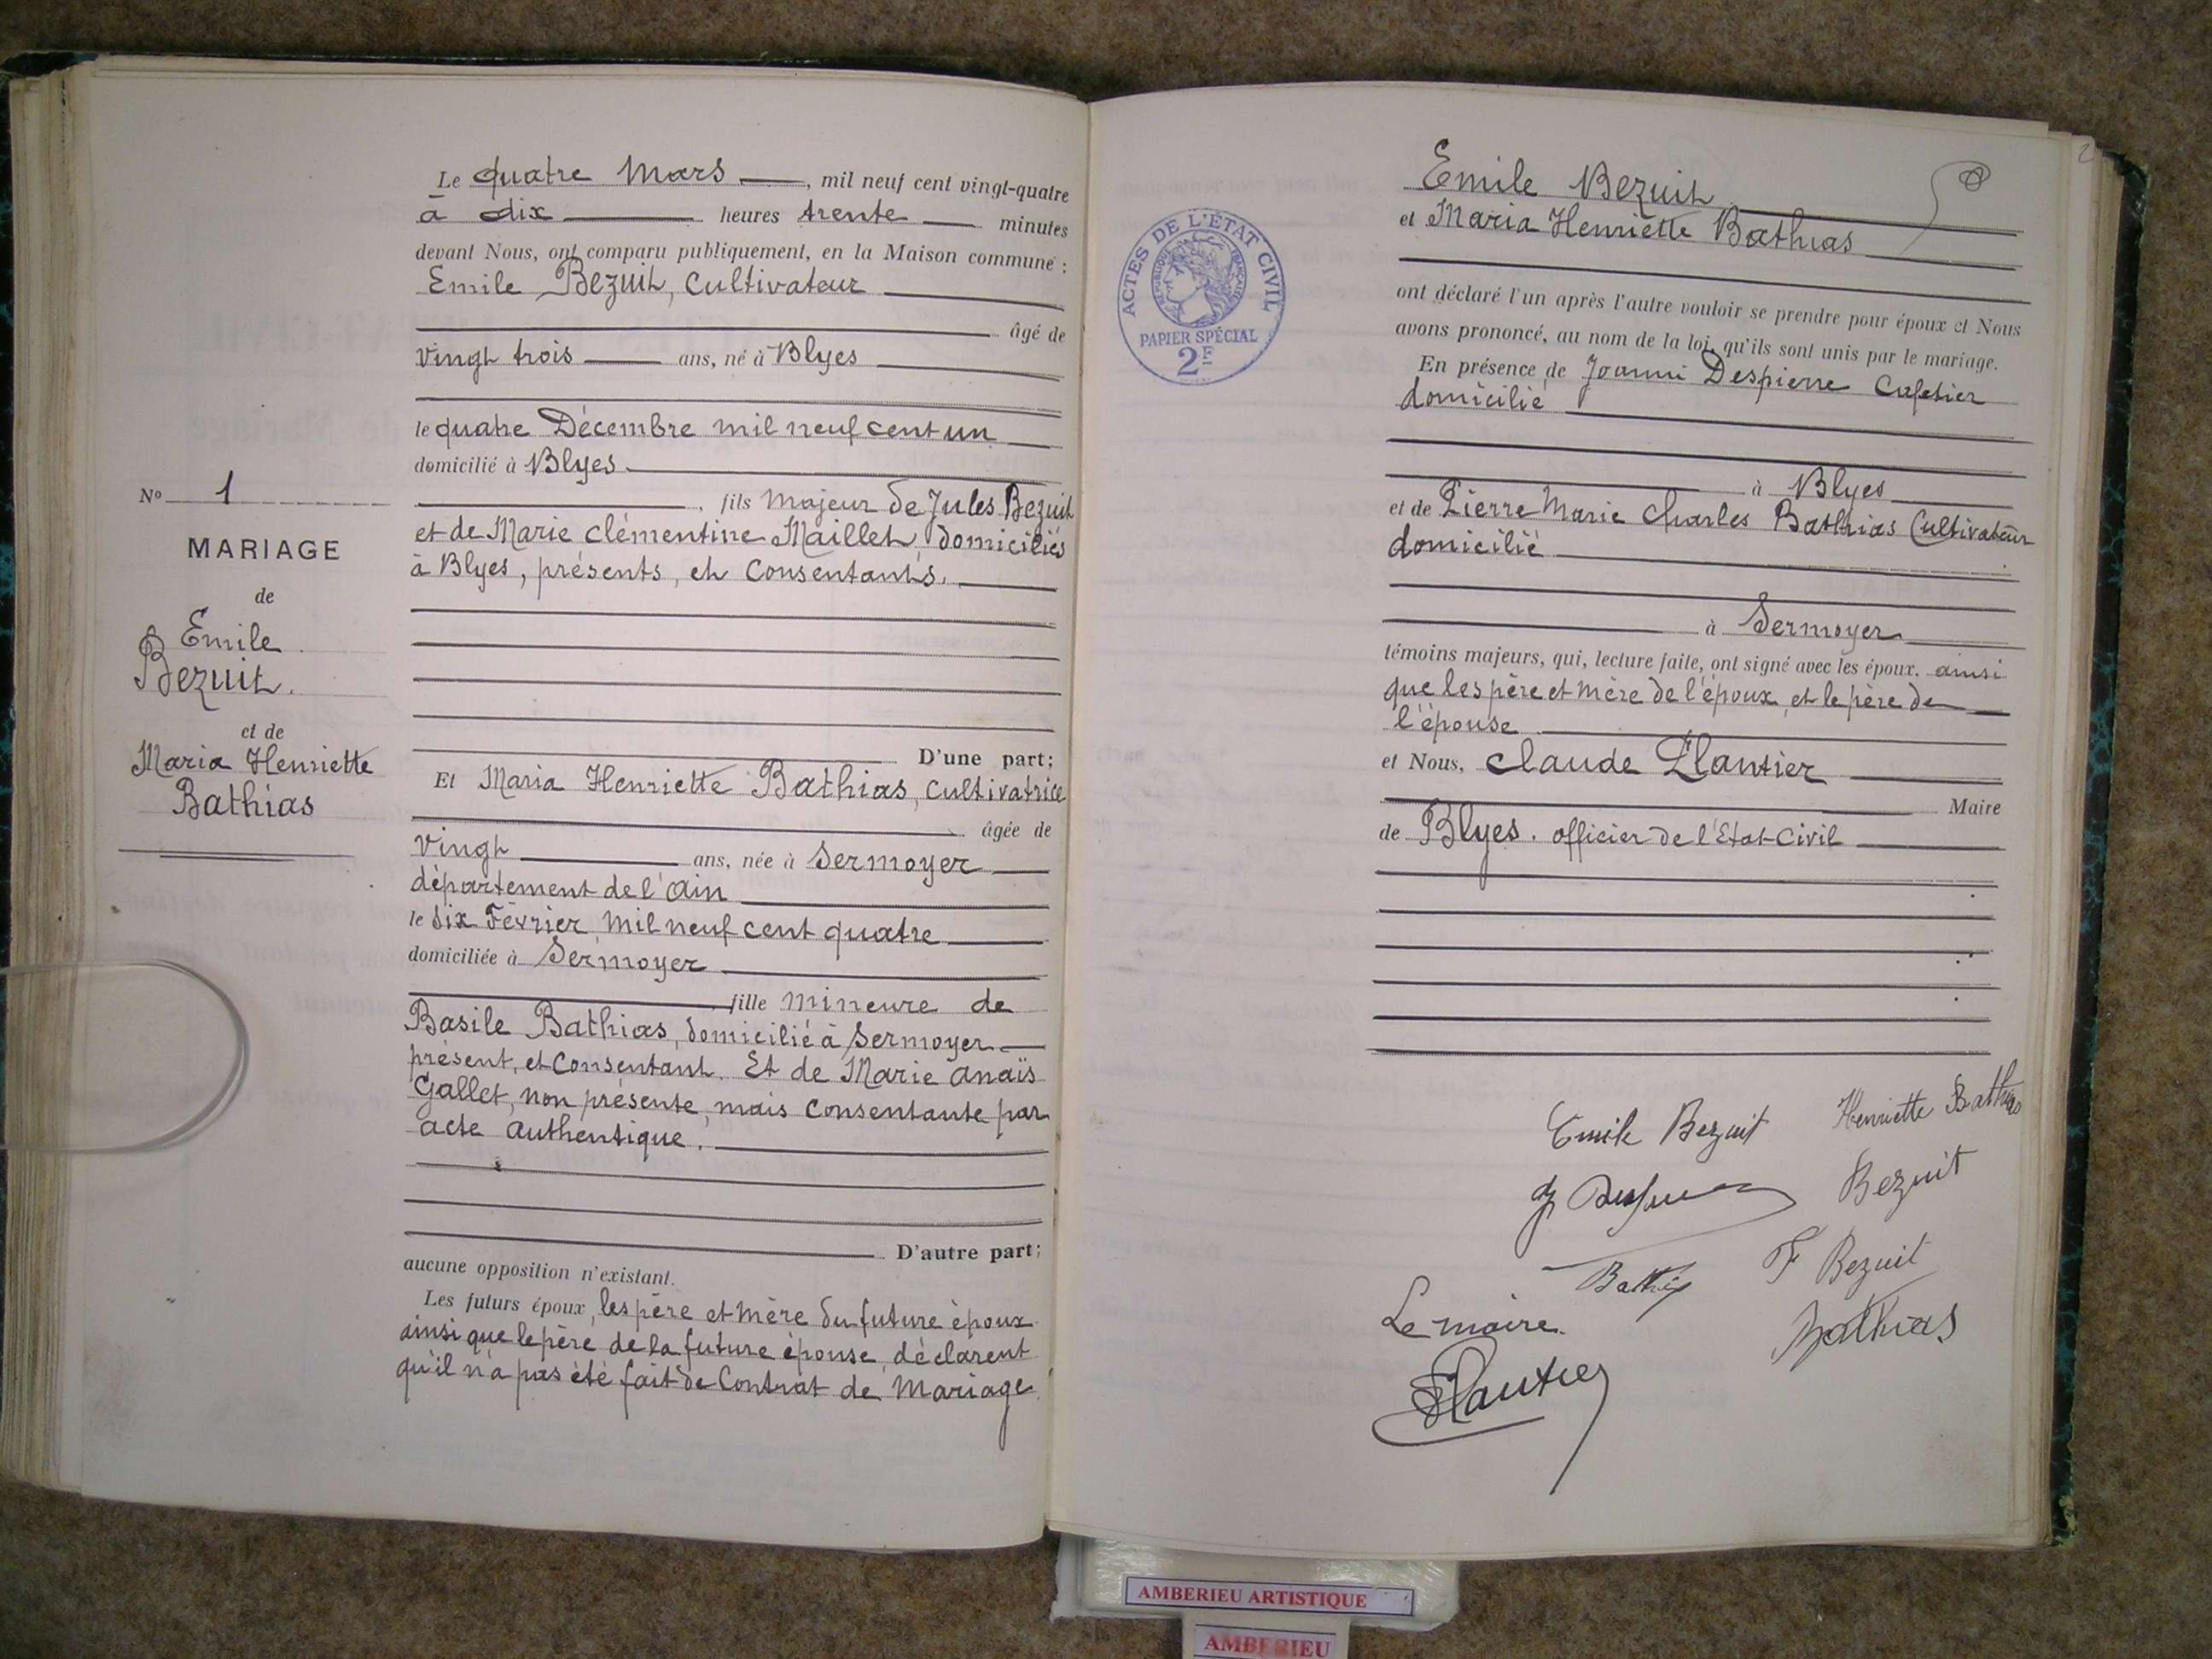 N° 1
MARIAGE
de
Emile
Bezuit.
et de
Maria Henriette
Bathias
Le quatre Mars, mil neuf cent vingt-quatre
à dix heures trente minutes
devant Nous, ont comparu publiquement, en la Maison commune :
Emile Bezuit, Cultivateur
âgé de
vingt trois ans, né à Blyes
le quatre Décembre mil neuf cent un
domicilié à Blyes
, fils majeur de Jules Bezuit
et de Marie Clémentine Maillet, domiciliés
à Blyes, présents, et Consentants.
D'une part;
Et Maria Henriette Bathias, Cultivatrice
âgée de
vingt ans, née à Sermoyer
département de l'Ain
le six Février mil neuf cent quatre
domiciliée à Sermoyer
fille mineure de
Basile Bathias, domicilié à Sermoyer
présent, et Consentant. Et de Marie Anaïs
Gallet, non présente, mais Consentante par
acte authentique.
D'autre part;
aucune opposition n'existant.
Les futurs époux, les père et mère du future époux
ainsi que le père de la future épouse, déclarent
qu'il n'a pas été fait de Contrat de Mariage.
ACTES DE L'ÉTAT CIVIL
RÉPUBLIQUE FRANÇAISE
PAPIER SPÉCIAL
2F
2
Emile Bezuit
et Maria Henriette Bathias
ont déclaré l'un après l'autre vouloir se prendre pour époux et Nous
avons prononcé, au nom de la loi, qu'ils sont unis par le mariage.
En présence de Joanni Despierre Cafetier
domicilié
à Blyes
et de Pierre Marie Charles Bathias Cultivateur
domicilié
à Sermoyer
témoins majeurs, qui, lecture faite, ont signé avec les époux. ainsi
que les père et mère de l'époux, et le père de
l'épouse
et Nous, Claude Plantier
Maire
de Blyes. officier de l'Etat-Civil
Emile Bezuit Henriette Bathias
Bezuit
F Bezuit
Le maire. Bathias
Plantier
AMBERIEU ARTISTIQUE
AMBERIEU